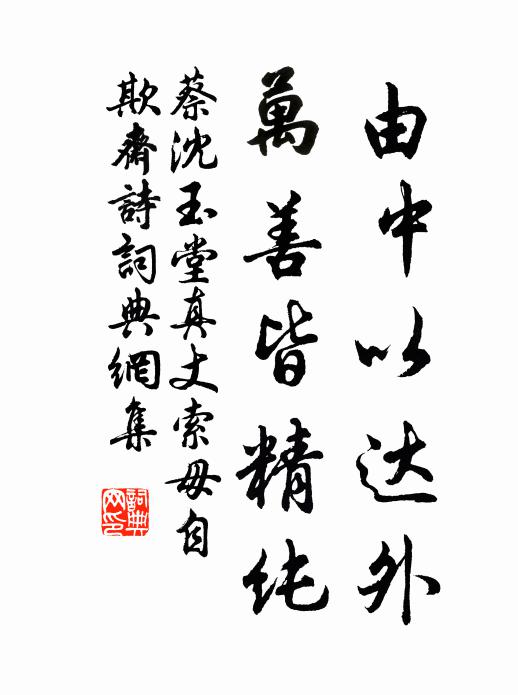 由中以达外
萬善皆精纯
蔡沈玉堂真丈索毋自
欺齋詩詞典網集
詞典网印